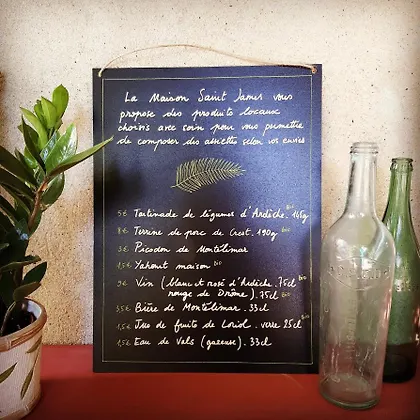 La Maison Saint James vous
propose des produits locaux
choisis avec soin pour vous permettre
de composer des assiettes selon vos envies
5€ Tartinade de légumes d'Ardèche. 145g Bio
8€ Terrine de porc de Crest. 190g Bio
3€ Picodon de Montélimar
1,5€ Yahourt maison Bio
9€ Vin (blanc et rosé d'Ardèche. 75cl
rouge de Drôme). 75cl Bio
3,5€ Bière de Montélimar. 33cl
1,5€ Jus de fruits de Loriol. verre 25cl Bio
1,5€ Eau de Vals (gazeuse). 33cl